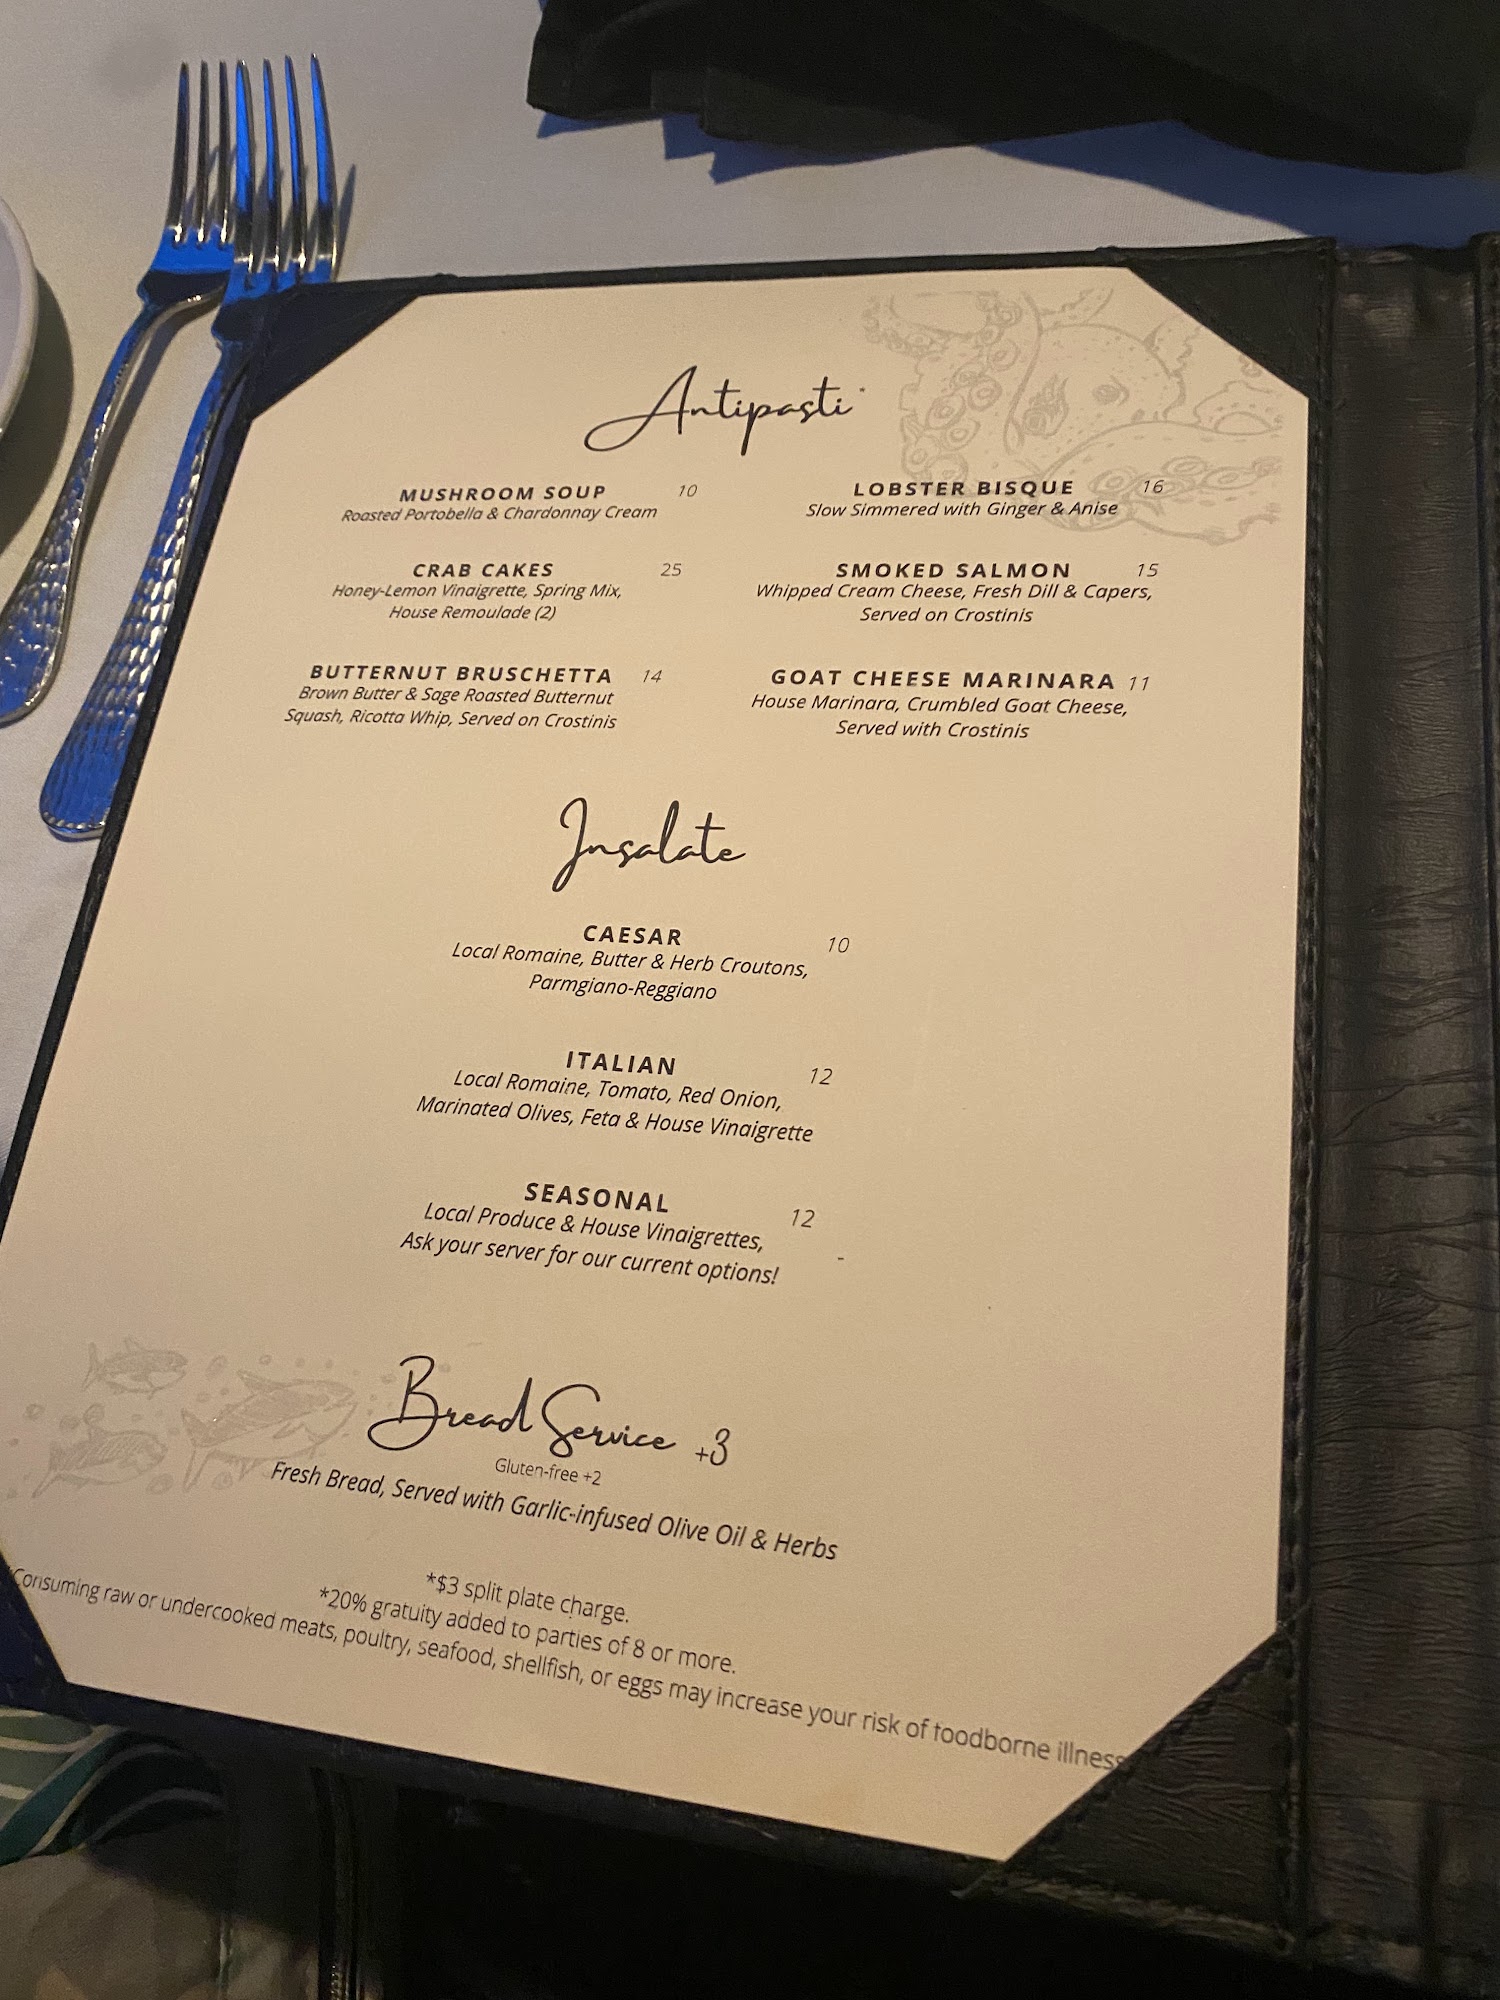 Antipasti*
MUSHROOM SOUP 10
Roasted Portobella & Chardonnay Cream
LOBSTER BISQUE 16
Slow Simmered with Ginger & Anise
CRAB CAKES 25
Honey-Lemon Vinaigrette, Spring Mix,
House Remoulade (2)
SMOKED SALMON 15
Whipped Cream Cheese, Fresh Dill & Capers,
Served on Crostinis
BUTTERNUT BRUSCHETTA 14
Brown Butter & Sage Roasted Butternut
Squash, Ricotta Whip, Served on Crostinis
GOAT CHEESE MARINARA 11
House Marinara, Crumbled Goat Cheese,
Served with Crostinis
Insalate
CAESAR 10
Local Romaine, Butter & Herb Croutons,
Parmgiano-Reggiano
ITALIAN 12
Local Romaine, Tomato, Red Onion,
Marinated Olives, Feta & House Vinaigrette
SEASONAL 12
Local Produce & House Vinaigrettes,
Ask your server for our current options!
-
Bread Service +3
Gluten-free +2
Fresh Bread, Served with Garlic-infused Olive Oil & Herbs
*$3 split plate charge.
*20% gratuity added to parties of 8 or more.
*Consuming raw or undercooked meats, poultry, seafood, shellfish, or eggs may increase your risk of foodborne illness